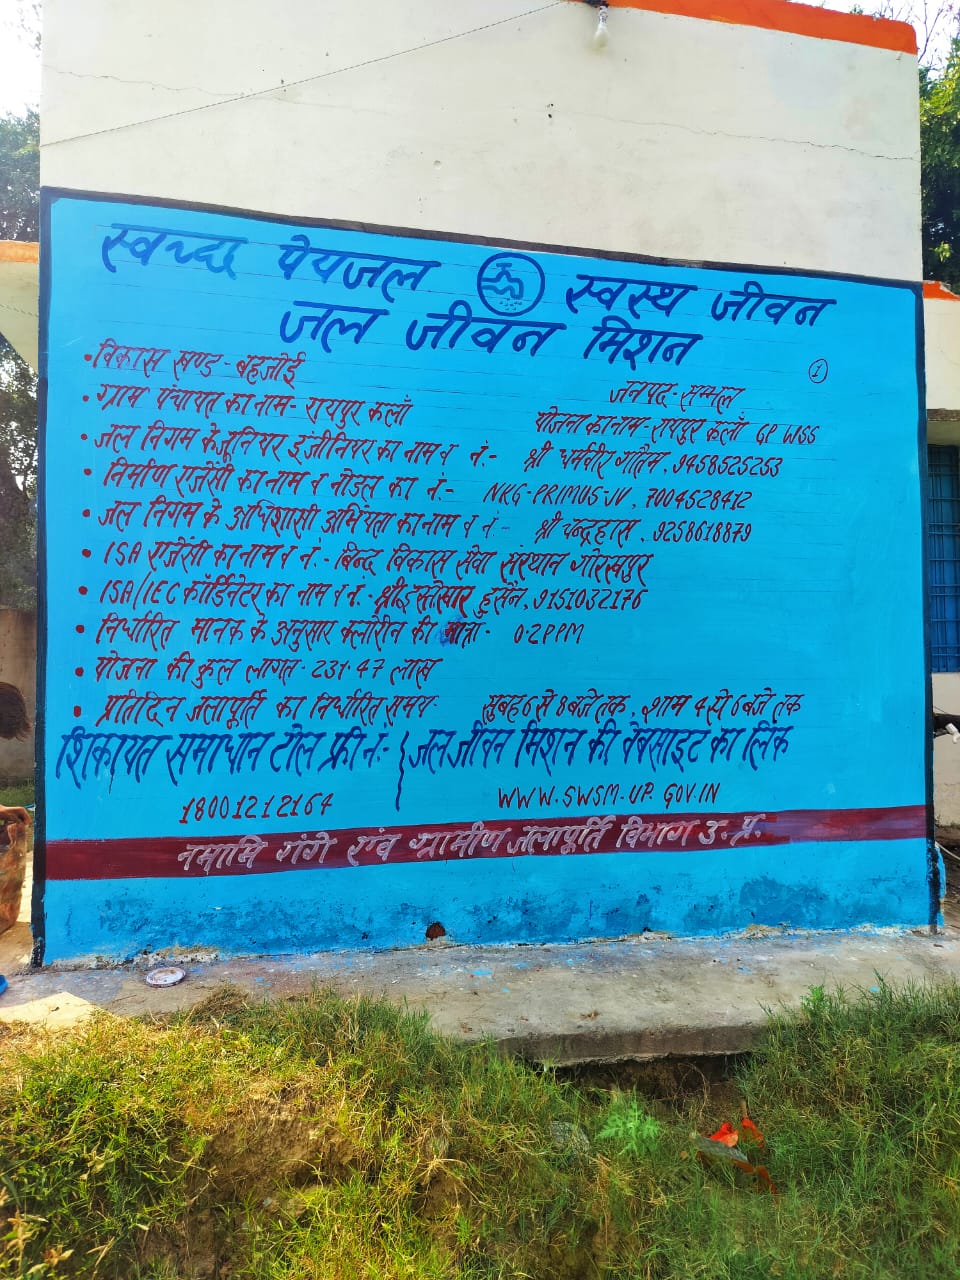 स्वच्छ पेयजल स्वस्थ जीवन
जल जीवन मिशन
①
• विकास खण्ड - बहजोई जनपद - सम्भल
• ग्राम पंचायत का नाम - रायपुर कलाँ योजना का नाम - रायपुर कलाँ GP WSS
• जल निगम के जूनियर इंजीनियर का नाम व नं.- श्री धर्मवीर गौतम, 9458525253
• निर्माण एजेंसी का नाम व नोडल का नं.- NKG-PRIMUS-JV, 7004528412
• जल निगम के अधिशासी अभियंता का नाम व नं.- श्री चन्द्रहास, 9258618879
• ISA एजेंसी का नाम व नं.- बिन्द विकास सेवा संस्थान गोरखपुर
• ISA/IEC कॉर्डिनेटर का नाम व नं.- श्री हुसैन, 9151032176
• निर्धारित मानक के अनुसार क्लोरीन की मात्रा - 0.2PPM
• योजना की कुल लागत - 231.47 लाख
• प्रतिदिन जलापूर्ति का निर्धारित समय- सुबह 6 से 8 बजे तक, शाम 4 से 6 बजे तक
शिकायत समाधान टोल फ्री नं:- जल जीवन मिशन की वेबसाइट का लिंक
18001212164 WWW.SWSM-UP.GOV.IN
नमामि गंगे एवं ग्रामीण जलापूर्ति विभाग उ.प्र.